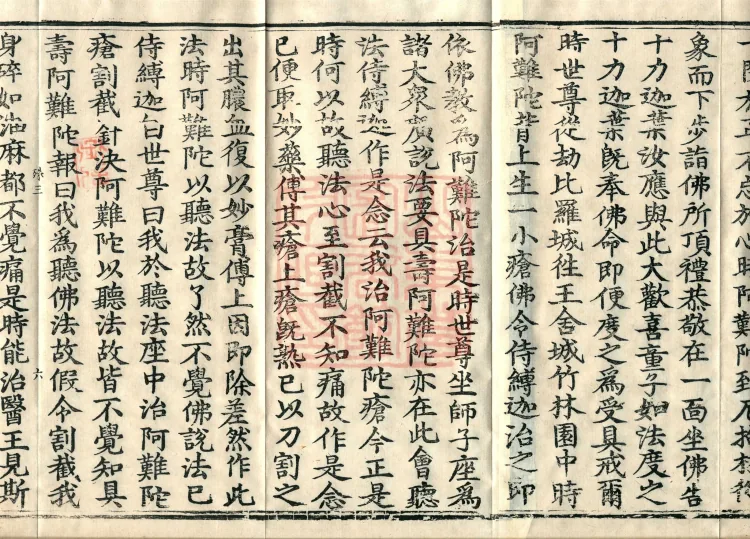 不忘於心時阿難陀至
象而下步詣佛所頂禮恭敬在一面坐佛告
十力迦葉汝應與此大歡喜童子如法度之
十力迦葉既奉佛命即便度之為受具戒爾
時世尊從劫比羅城往王舍城竹林園中時
阿難陀背上生一小瘡佛令侍縛迦治之即
依佛教為阿難陀治是時世尊坐師子座為
諸大眾廣說法要具壽阿難陀亦在此會聽
法侍縛迦作是念云我治阿難陀瘡今正是
時何以故聽法心至割截不知痛故作是念
已便取妙藥傅其瘡上瘡既熟已以刀割之
出其膿血復以妙膏傅上因即除差然作此
法時阿難陀以聽法故了然不覺佛說法已
侍縛迦白世尊曰我於聽法座中治阿難陀
瘡割截針決阿難陀以聽法故皆不覺知具
壽阿難陀報曰我爲聽佛法故假令割截我
三 六
身碎如油麻都不覺痛是時能治醫王見斯